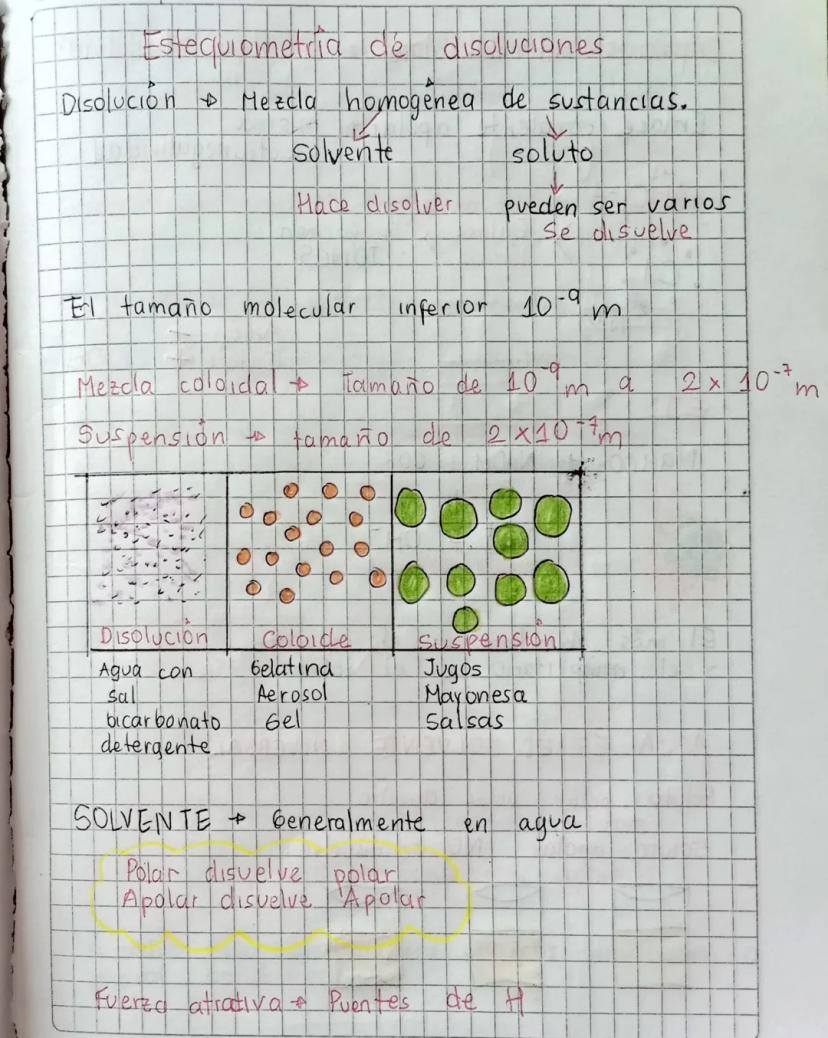 Estequiometría de disoluciones
Disolución → Mezcla homogénea de sustancias.
Solvente soluto
Hace disolver pueden ser varios
Se disuelve
El tamaño molecular inferior 10⁻⁹ m
Mezcla coloidal → Tamaño de 10⁻⁹ m a 2 x 10⁻⁷ m
Suspensión → tamaño de 2 x 10⁻⁷ m
Disolución Coloide Suspensión
Agua con Gelatina Jugos
sal Aerosol Mayonesa
bicarbonato Gel Salsas
detergente
SOLVENTE → Generalmente en agua
Polar disuelve polar
Apolar disuelve Apolar
Fuerza atrativa → Puentes de H